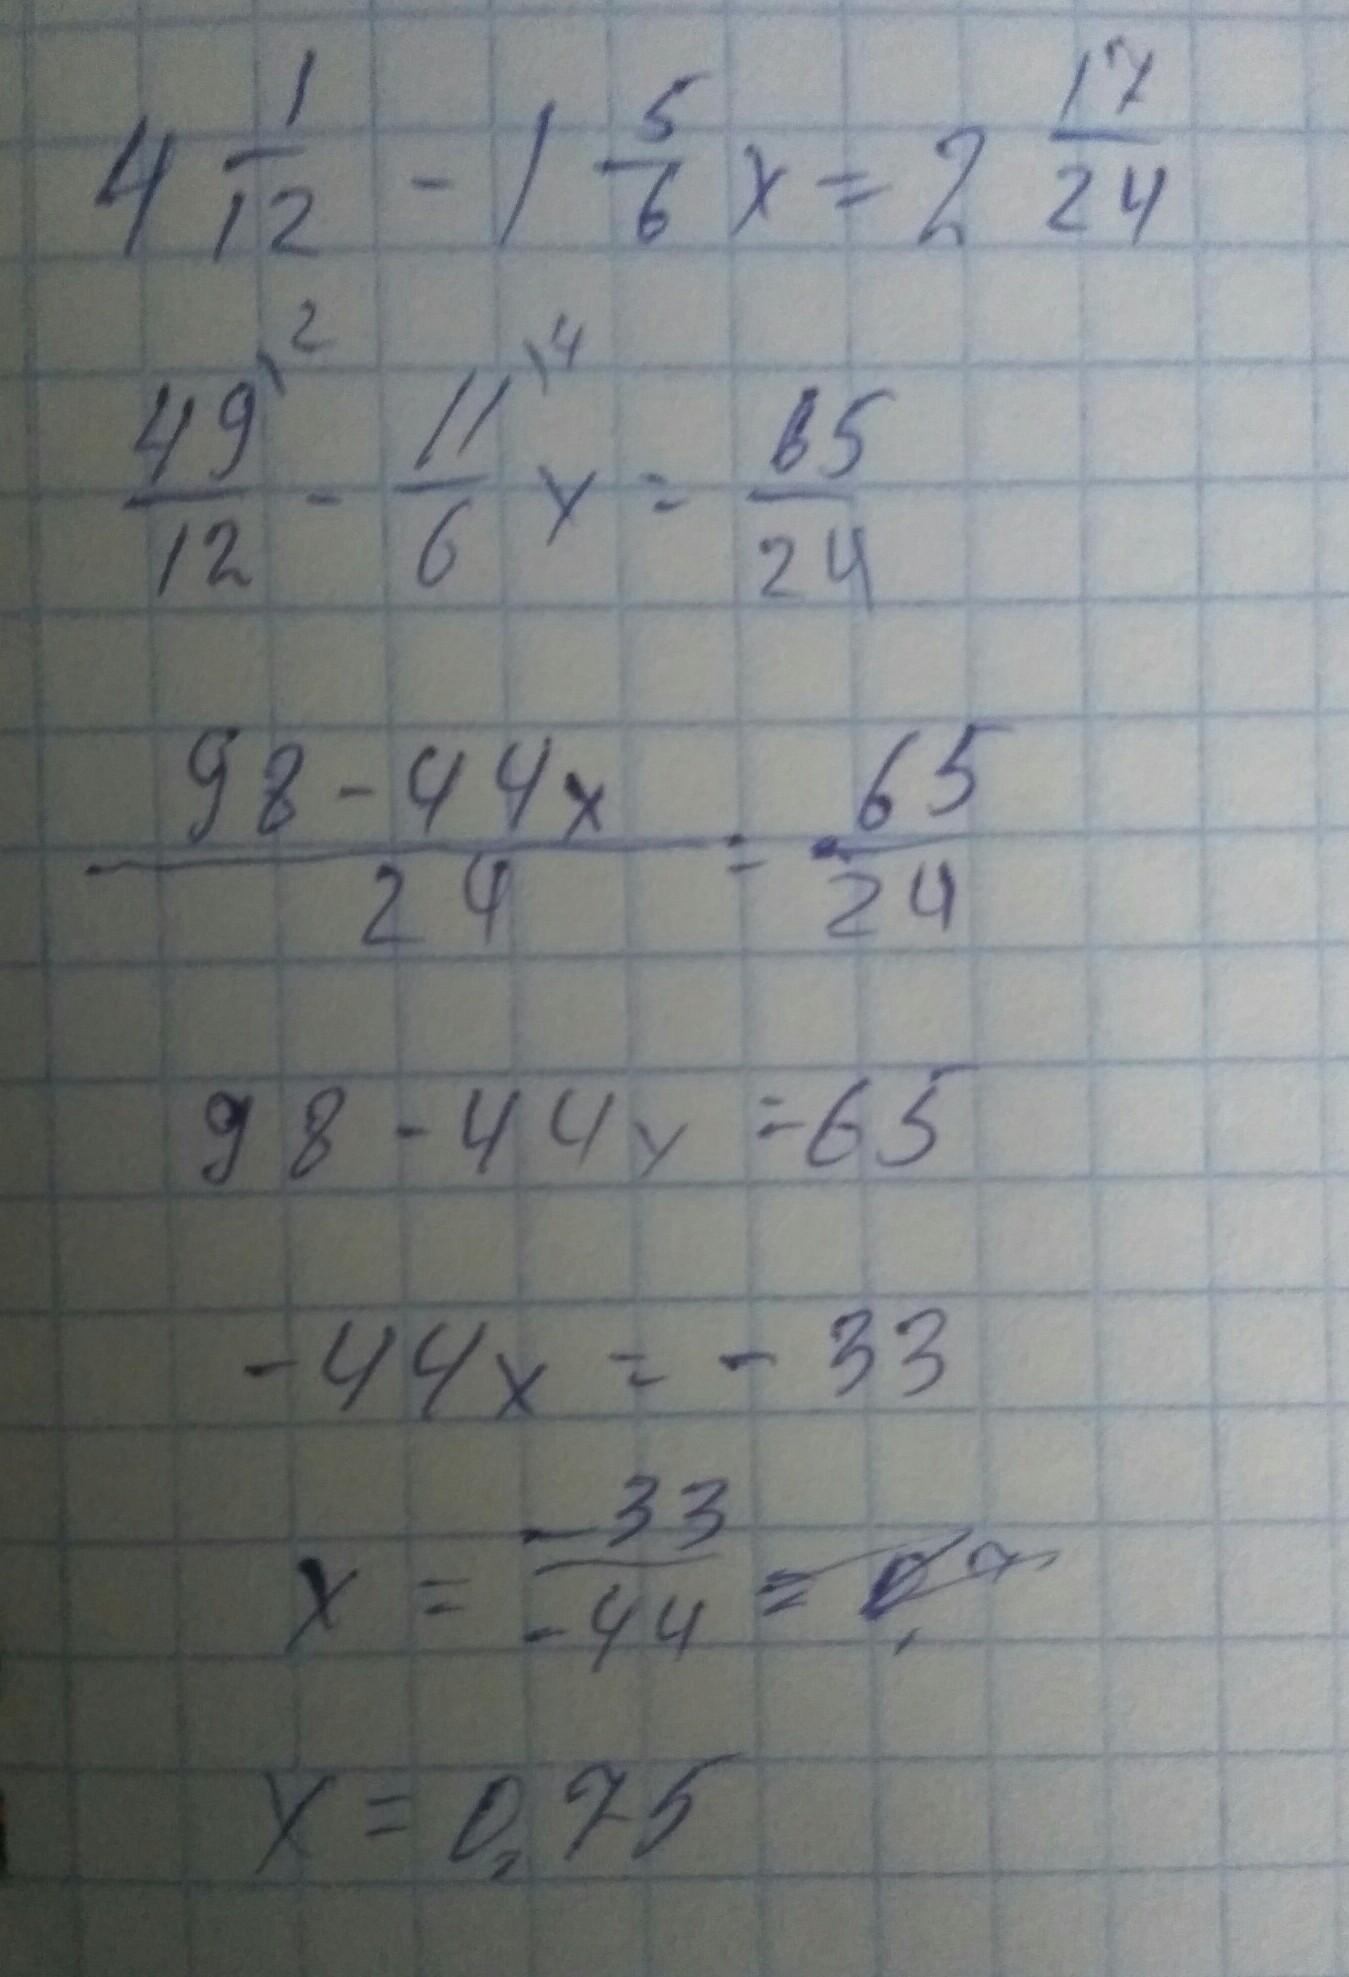 4 1/12 - 1 5/6 x = 2 17/24
49/12 \2 - 11/6 \4 x = 65/24
98 - 44x / 24 = 65/24
98 - 44x = 65
-44x = - 33
x = -33/-44 =
x = 0,75